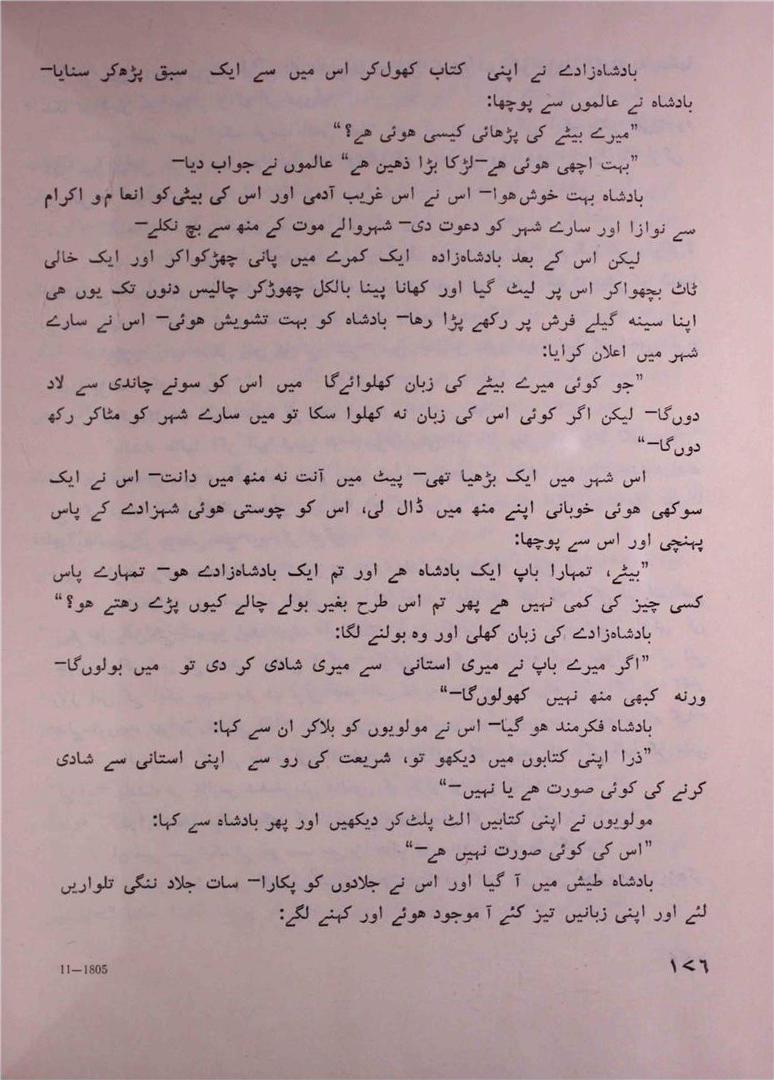 بادشاہ‌زادے نے اپنی کتاب کھول‌کر اس میں سے ایک سبق پڑھ‌کر سنایا—
بادشاہ نے عالموں سے پوچھا:
”میرے بیٹے کی پڑھائی کیسی ھوئی ھے؟“
”بہت اچھی ھوئی ھے—لڑکا بڑا ذھین ھے“ عالموں نے جواب دیا—
بادشاہ بہت خوش‌ھوا— اس نے اس غریب آدمی اور اس کی بیٹی‌کو انعا م‌و اکرام
سے نوازا اور سارے شہر کو دعوت دی— شہروالے موت کے منھ سے بچ نکلے—
لیکن اس کے بعد بادشاہ‌زادہ ایک کمرے میں پانی چھڑکواکر اور ایک خالی
ٹاٹ بچھواکر اس پر لیٹ گیا اور کھانا پینا بالکل چھوڑکر چالیس دنوں تک یوں ھی
اپنا سینہ گیلے فرش پر رکھے پڑا رھا— بادشاہ کو بہت تشویش ھوئی— اس نے سارے
شہر میں اعلان کرایا:
”جو کوئی میرے بیٹے کی زبان کھلوائےگا میں اس کو سونے چاندی سے لاد
دوں‌گا— لیکن اگر کوئی اس کی زبان نہ کھلوا سکا تو میں سارے شہر کو مٹاکر رکھ
دوں‌گا—“
اس شہر میں ایک بڑھیا تھی— پیٹ میں آنت نہ منھ میں دانت— اس نے ایک
سوکھی ھوئی خوبانی اپنے منھ میں ڈال لی، اس کو چوستی ھوئی شہزادے کے پاس
پہنچی اور اس سے پوچھا:
”بیٹے، تمہارا باپ ایک بادشاہ ھے اور تم ایک بادشاہ‌زادے ھو— تمہارے پاس
کسی چیز کی کمی نہیں ھے پھر تم اس طرح بغیر بولے چالے کیوں پڑے رھتے ھو؟“
بادشاہ‌زادے کی زبان کھلی اور وہ بولنے لگا:
”اگر میرے باپ نے میری استانی سے میری شادی کر دی تو میں بولوں‌گا—
ورنہ کبھی منھ نہیں کھولوں‌گا—“
بادشاہ فکرمند ھو گیا— اس نے مولویوں کو بلاکر ان سے کہا:
”ذرا اپنی کتابوں میں دیکھو تو، شریعت کی رو سے اپنی استانی سے شادی
کرنے کی کوئی صورت ھے یا نہیں—“
مولویوں نے اپنی کتابیں الٹ پلٹ‌کر دیکھیں اور پھر بادشاہ سے کہا:
”اس کی کوئی صورت نہیں ھے—“
بادشاہ طیش میں آ گیا اور اس نے جلادوں کو پکارا— سات جلاد ننگی تلواریں
لئے اور اپنی زبانیں تیز کئے آ موجود ھوئے اور کہنے لگے:
۱۷٦
11—1805